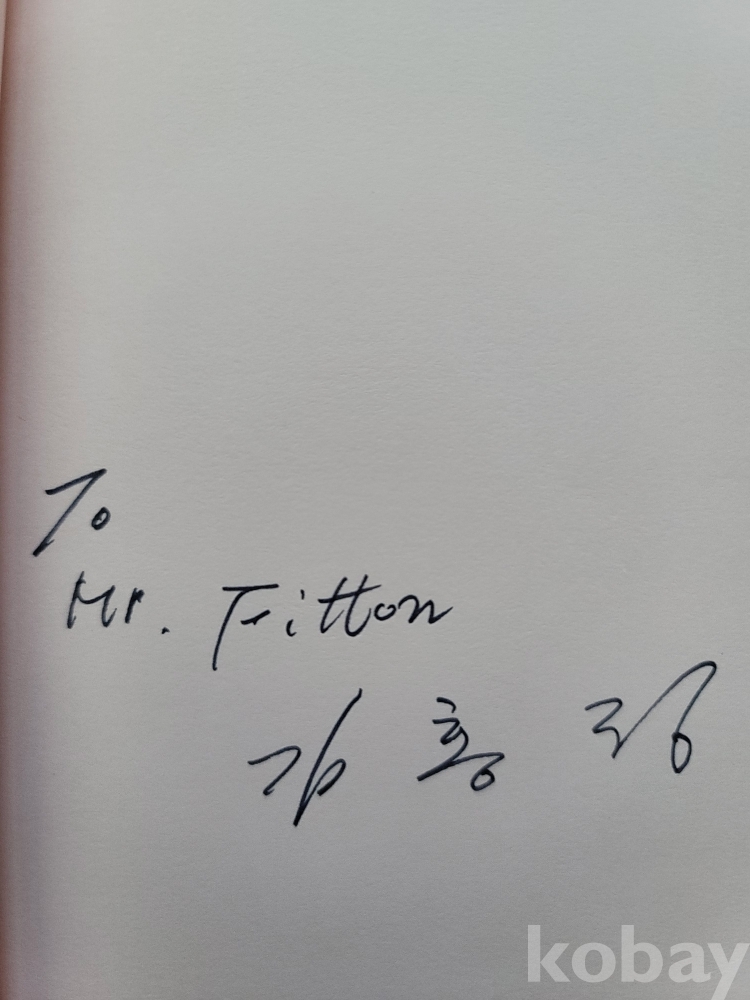 To
Mr. Fitton
김
kobay